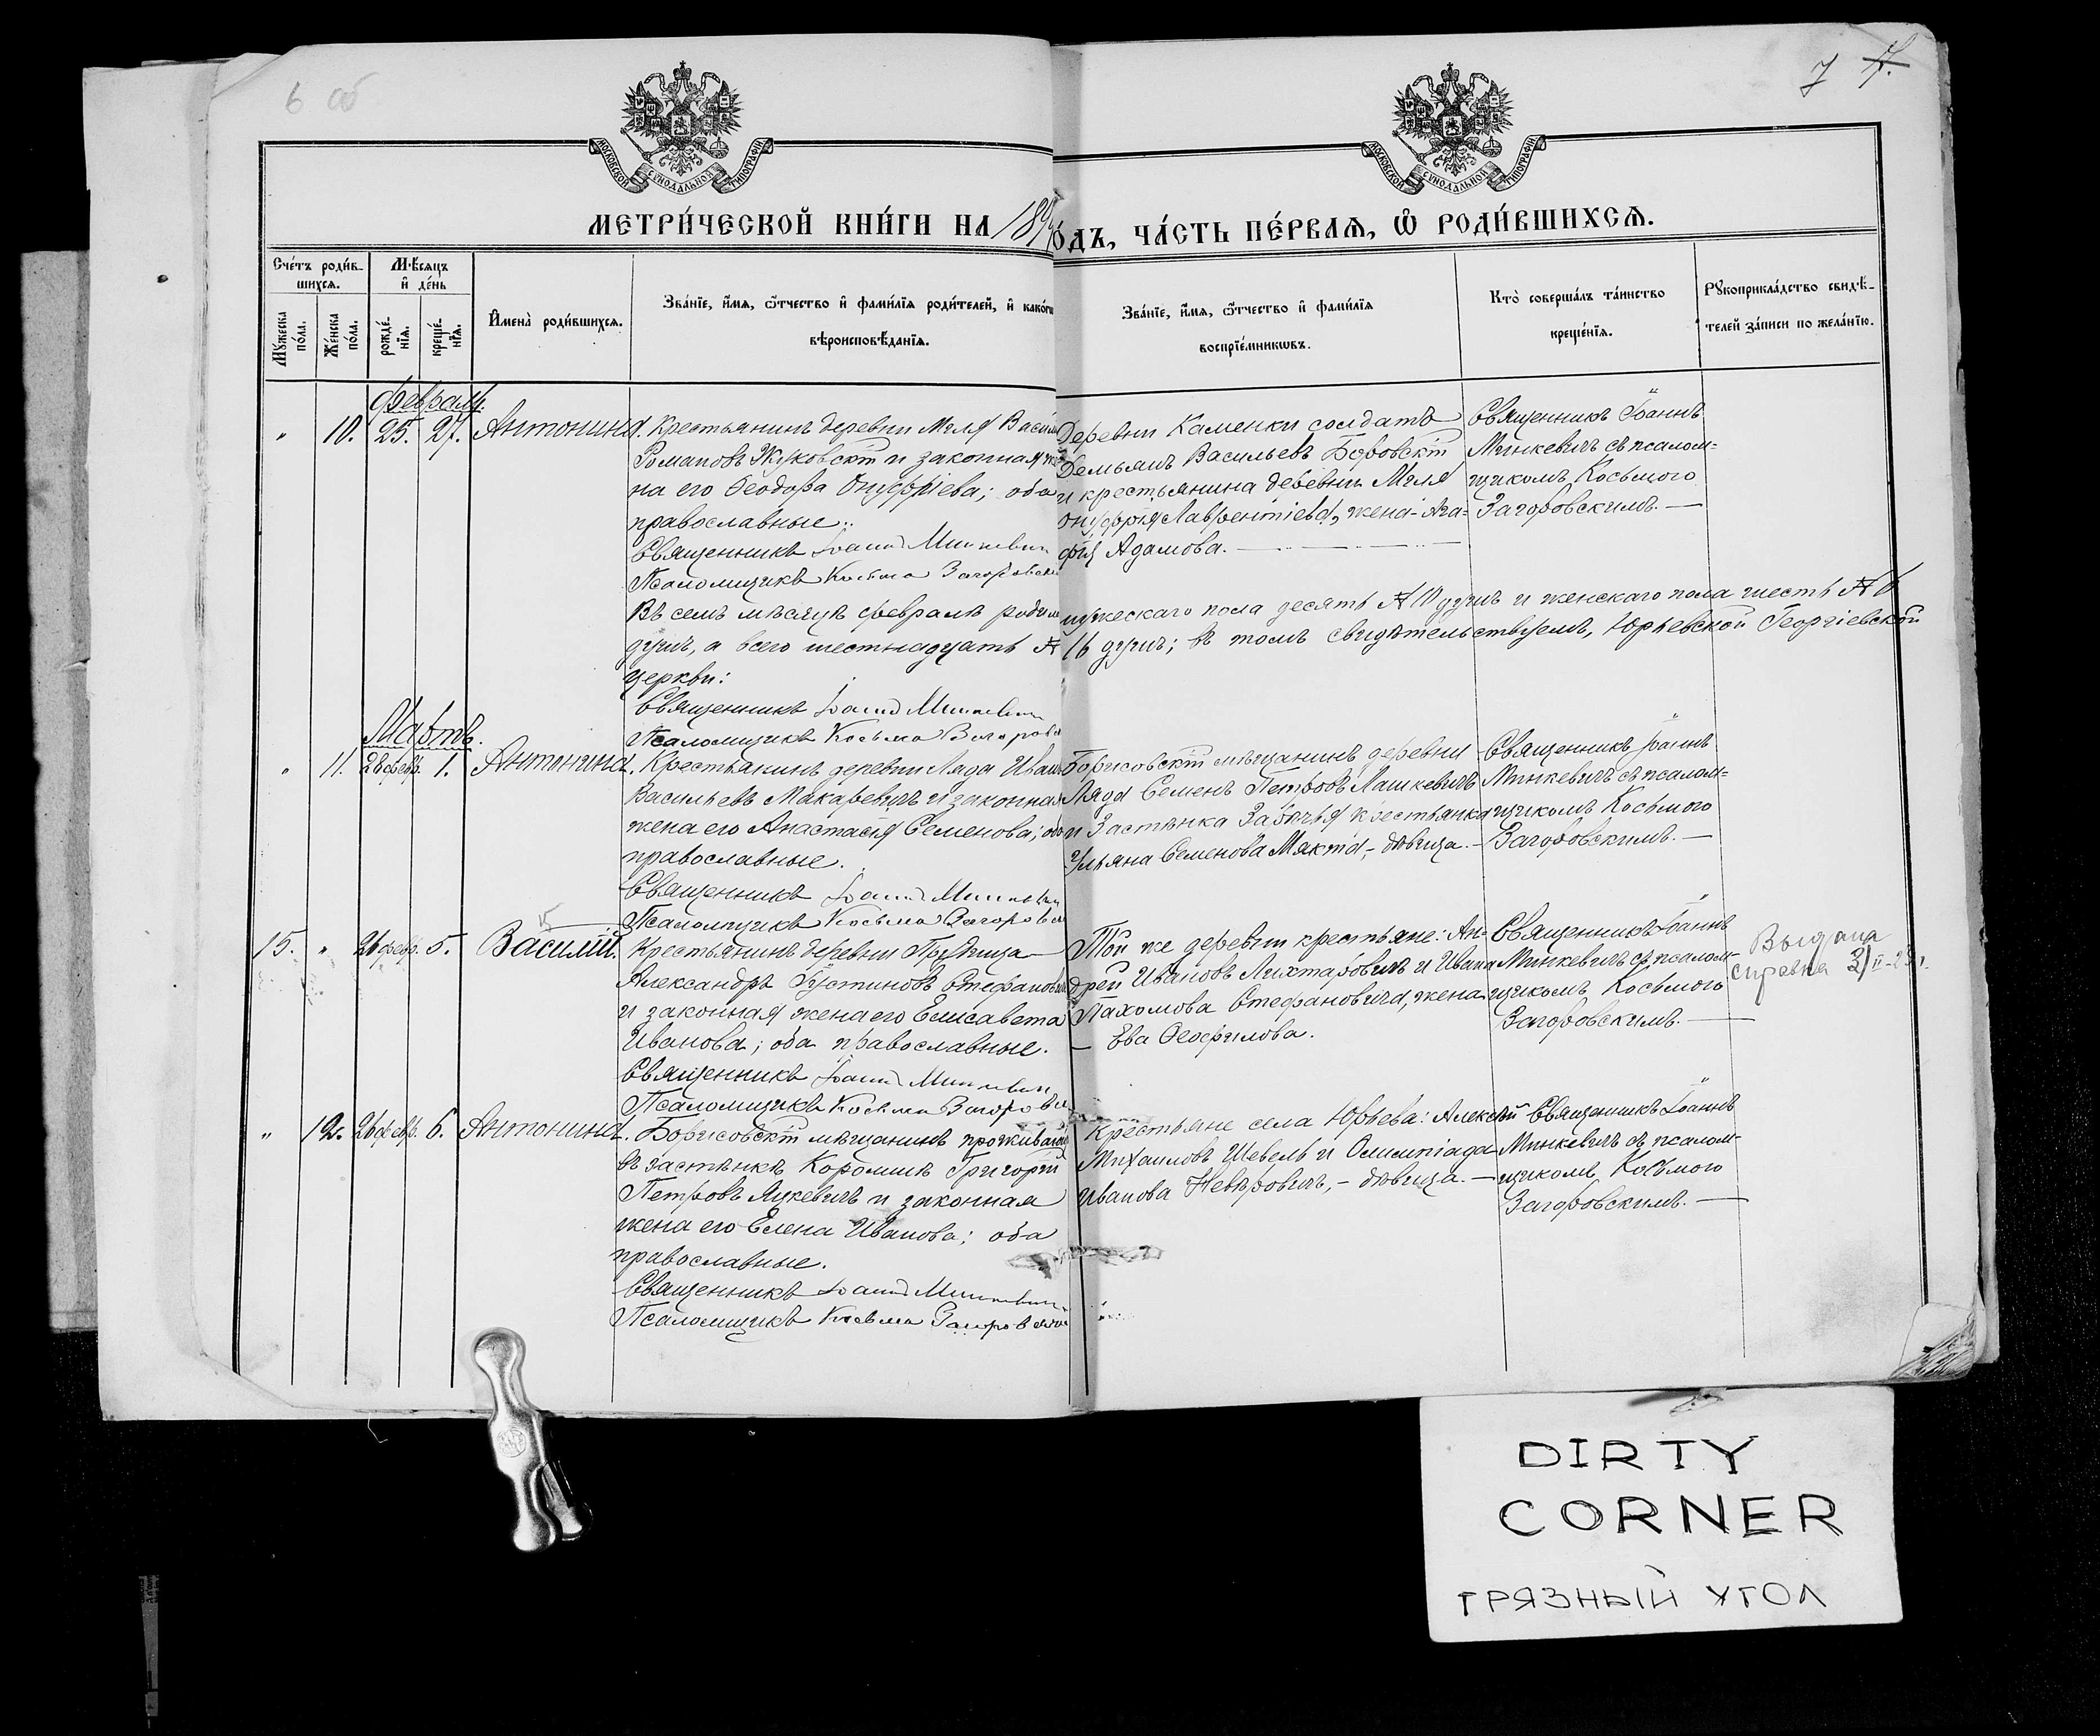 6 об
7 4.
МОСКОВСКОЙ СѴНОДАЛЬНОЙ ТИПОГРАФІИ
МОСКОВСКОЙ СѴНОДАЛЬНОЙ ТИПОГРАФІИ
МЕТРИ́ЧЕСКОЙ КНИ́ГИ НА 189
О́ДЪ, ЧА́СТЬ ПЕ́РВАЯ, Ѽ РОДИ́ВШИХСЯ.
Сче́тъ роди́в-
шихся.
Мѣ́сяцъ
и҆ де́нь
Мꙋжеска по́ла.
Же́нска по́ла.
рожде́-
нїя.
креще́-
нїя.
И҆мена̀ роди́вшихся.
Зва́нїе, и҆́мя, ѻ҆́тчество и҆ фами́лїя роди́телей, и҆ како́гѡ
вѣроисповѣ́данїя.
Зва́нїе, и҆́мя, ѻ҆́тчество и҆ фами́лїя
воспрїе́мникѡвъ.
Кто̀ соверша́лъ та́инство
креще́нїя.
Рꙋкоприкла́дство свидѣ́-
телей за́писи по жела́нїю.
Февраль.
" 10. 25. 27. Антонина.
Крестьянинъ деревни Мгля Васил
Романовъ Жуковскій и законная же
на его Ѳеодора Онуфріева; оба
православные.
Священникъ Іоаннъ Минкевич
Псаломщикъ Косьма Загоровск
Деревни Каменки солдатъ
Демьянъ Васильевъ Боровскій
и крестьянина деревни Мгля
Онуфрія Лаврентіева, жена Ага-
фія Адамова.
Священникъ Іоаннъ
Минкевичъ съ псалом-
щикомъ Косьмою
Загоровскимъ.
Въ семъ мѣсяцѣ февралѣ родил
мужескаго пола десять № 10 душъ и женскаго пола шесть № 6
душъ, а всего шестнадцать №
16 душъ; въ томъ свидѣтельствуемъ, Юрьевской Георгіевской
церкви:
Священникъ Іоаннъ Минкевич
Псаломщикъ Косьма Загоровс
Мартъ.
" 11. 28 февр. 1. Антонина.
Крестьянинъ деревни Ляда Иван
Васильевъ Макаревичъ и законная
жена его Анастасія Семенова; оба
православные.
Священникъ Іоаннъ Минкевич
Псаломщикъ Косьма Загоровск
Борисовскій мѣщанинъ деревни
Ляда Семенъ Петровъ Лашкевичъ
и Застѣнка Забичья крестьянка
Ульяна Семенова Мякота, - дѣвица.
Священникъ Іоаннъ
Минкевичъ съ псалом-
щикомъ Косьмою
Загоровскимъ.
15. " 26 февр. 5. Василій.
Крестьянинъ деревни Прудища
Александръ Іустиновъ Стефанович
и законная жена его Елисавета
Иванова; оба православные.
Священникъ Іоаннъ Минкевич
Псаломщикъ Косьма Загоровск
Той же деревни крестьяне: Ан-
дрей Ивановъ Лихтаровичъ и Ивана
Пахомова Стефановича, жена
Ева Ѳеофилова.
Священникъ Іоаннъ
Минкевичъ съ псалом-
щикомъ Косьмою
Загоровскимъ.
Выдана
справка 3/II-23 г.
" 12. 26 февр. 6. Антонина.
Борисовскій мѣщанинъ проживающ
въ застѣнкѣ Коромшѣ Григорій
Петровъ Яцкевичъ и законная
жена его Елена Иванова; оба
православные.
Священникъ Іоаннъ Минкевич
Псаломщикъ Косьма Загоровск
Крестьяне села Юрьева: Алексѣй
Михаиловъ Шевель и Олимпіада
Иванова Невѣровичъ, - дѣвица.
Священникъ Іоаннъ
Минкевичъ съ псалом-
щикомъ Косьмою
Загоровскимъ.
DIRTY
CORNER
ГРЯЗНЫЙ УГОЛ